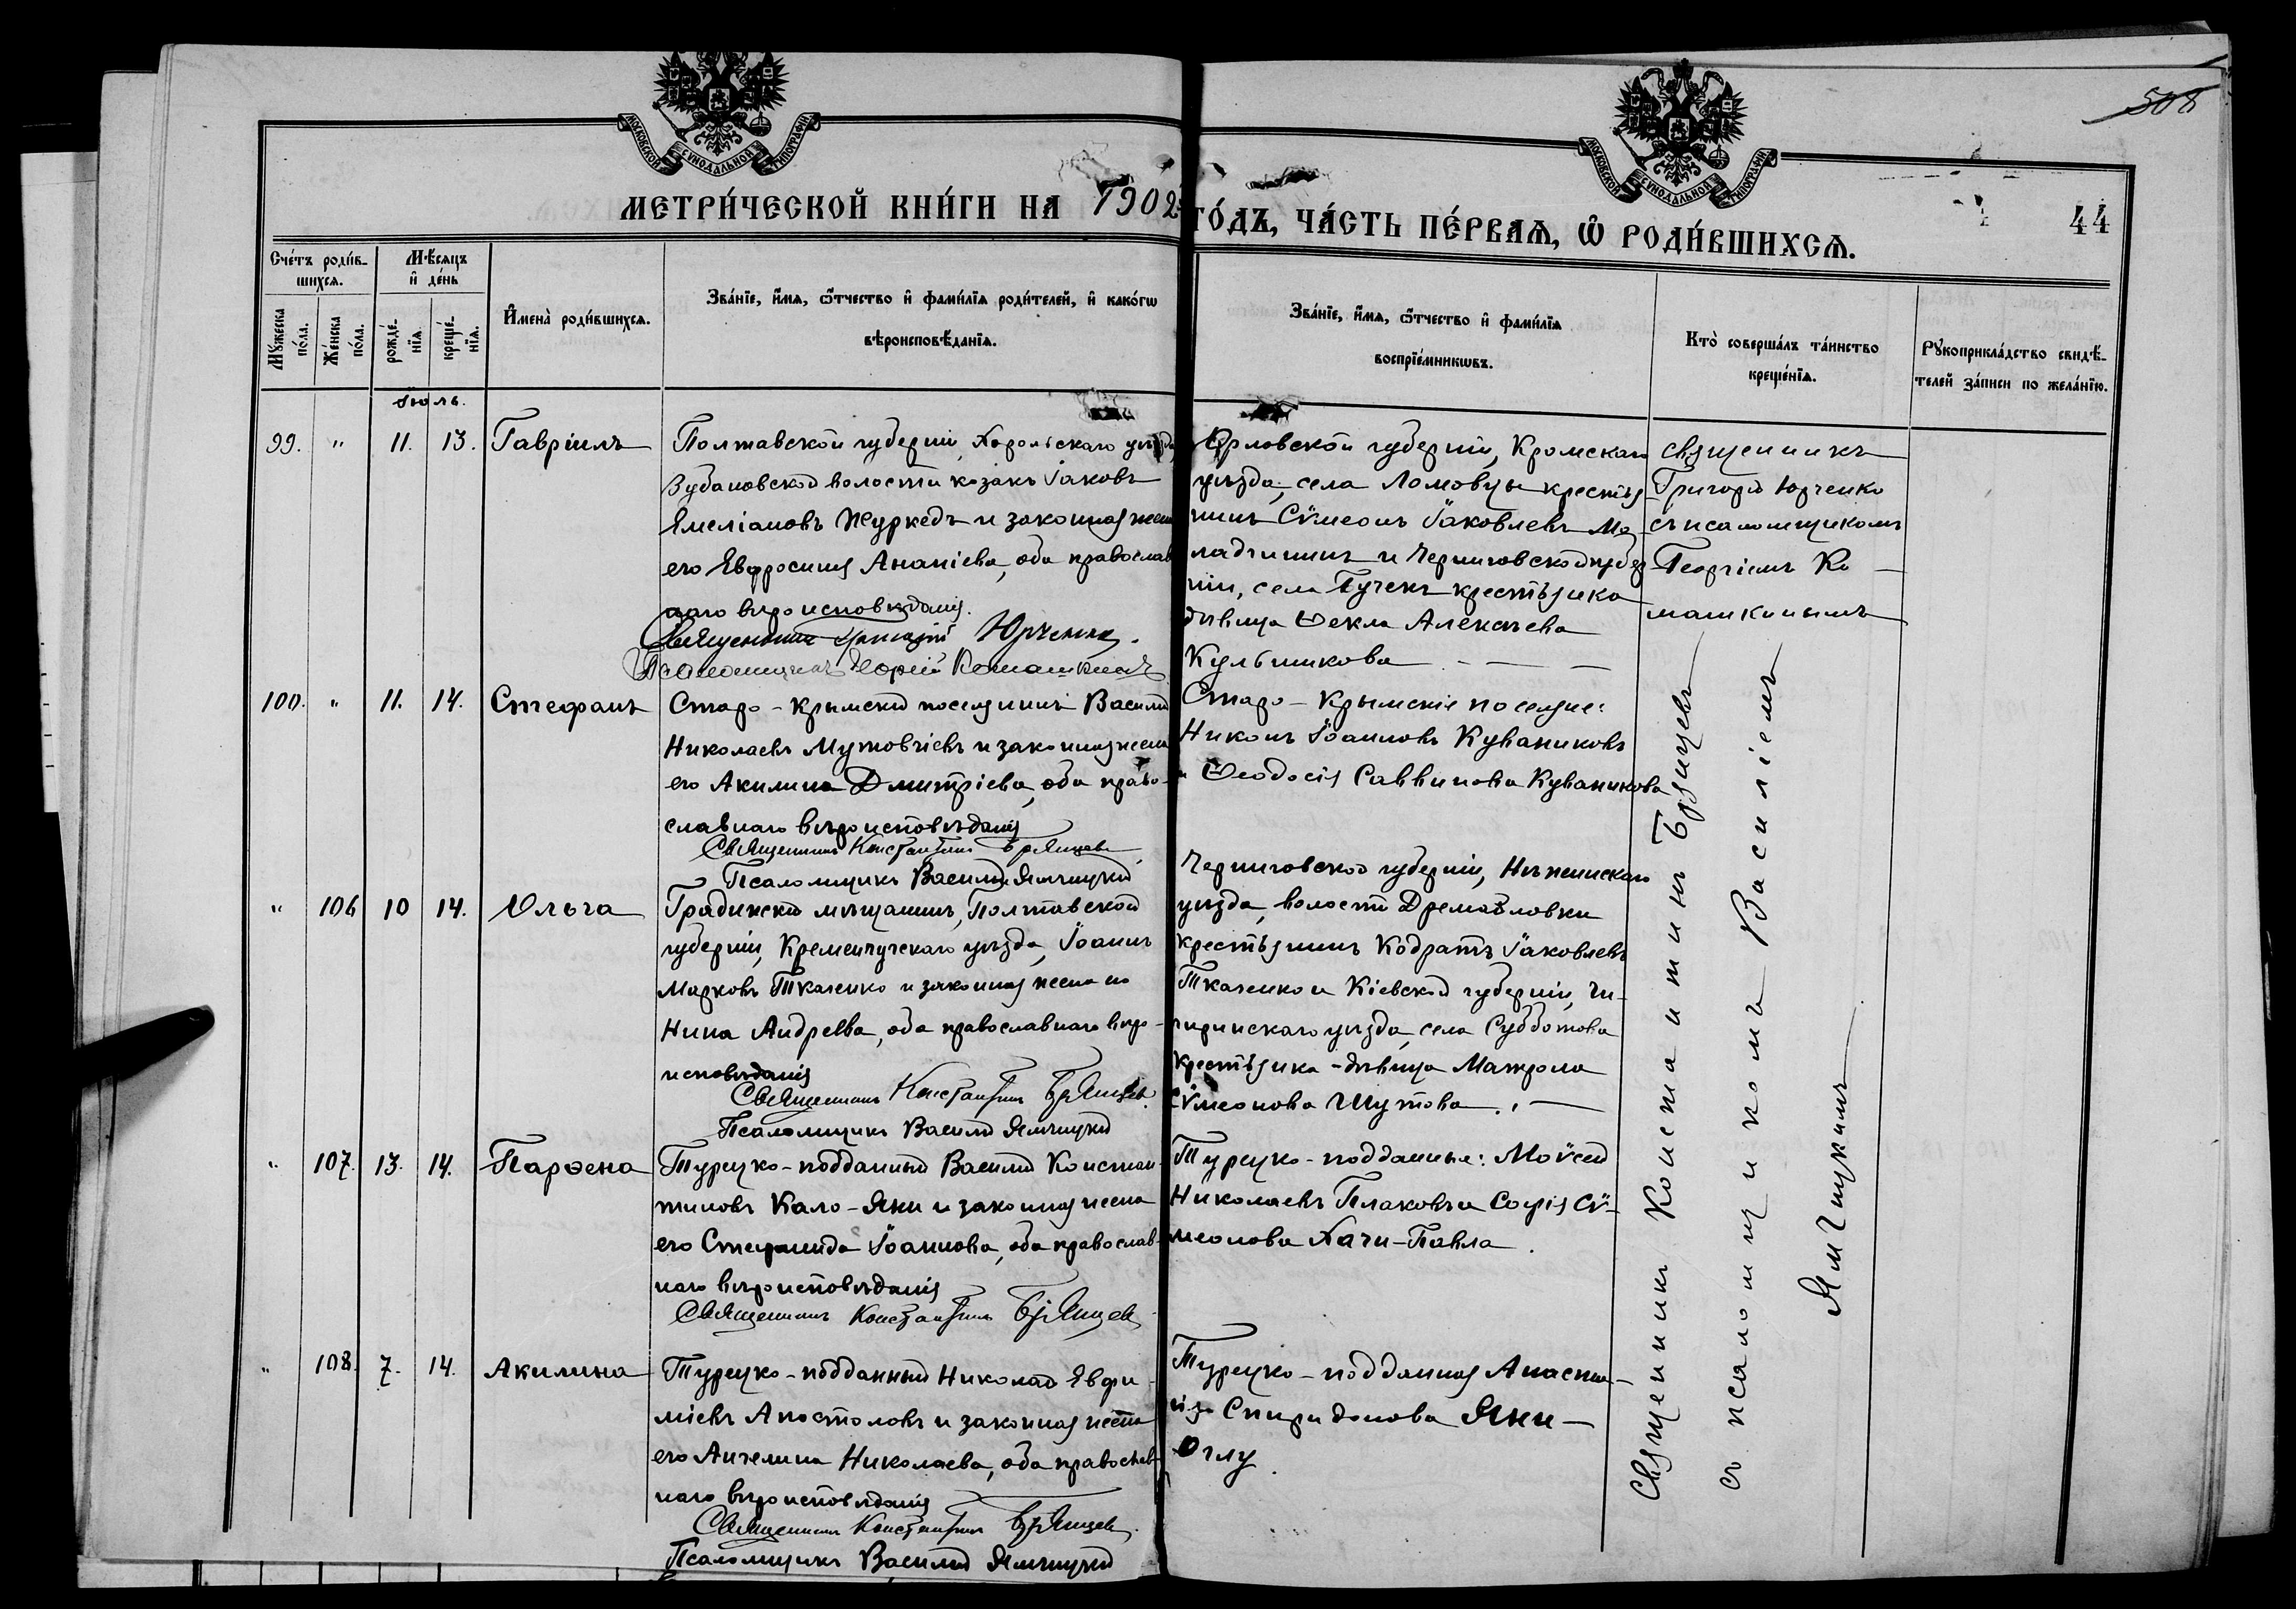 МОСКОВСКОЙ СѴНОДАЛЬНОЙ ТИПОГРАФІИ
МОСКОВСКОЙ СѴНОДАЛЬНОЙ ТИПОГРАФІИ
508
МЕТРИ́ЧЕСКОЙ КНИ́ГИ НА 1902 ГО́ДЪ, ЧА́СТЬ ПЕ́РВАѦ, Ѿ РОДИ́ВШИХСѦ.
44
Сче́тъ роди́в-
шихсѧ.
Мꙋ́жеска по́ла.
Же́нска по́ла.
Мѣ́сѧцъ
и҆ де́нь
рожде́-
нїѧ.
креще́-
нїѧ.
И҆мена̀ роди́вшихсѧ.
Зва́нїе, и҆́мѧ, ѻ҆́тчество и҆ фами́лїѧ роди́телей, и҆ како́гѡ
вѣроисповѣ́данїѧ.
Зва́нїе, и҆́мѧ, ѻ҆́тчество и҆ фами́лїѧ
воспрїе́мникѡвъ.
Кто̀ соверша́лъ та́инство
креще́нїѧ.
Рꙋкоприкла́дство свидѣ́-
телей за́писи по жела́нїю.
Іюль.
99. " 11. 13. Гавріилъ
Полтавской губерніи, Хорольскаго уѣзда,
Зубановской волости козакъ Іаковъ
Емеліановъ Журкедъ и законная жена
его Евфросинія Ананіева, оба православ
наго вѣроисповѣданія.
Священникъ Григорій Юрченко.
Псаломщикъ Георгій Комашкинъ
Орловской губерніи, Кромскаго
уѣзда, села Ломовцы крестья-
нинъ Сѵмеонъ Іаковлевъ Мо-
ладчининъ и Черниговской губер
ніи, села Бучекъ крестьянка
дѣвица Ѳекла Алексѣева
Кулбишкова
священникъ
Григорій Юрченко
съ псаломщикомъ
Георгіемъ Ко-
машкинымъ
100. " 11. 14. Стефанъ
Старо-Крымскій поселянинъ Василій
Николаевъ Мутовчіевъ и законная жена
его Акилина Дмитріева, оба право-
славнаго вѣроисповѣданія
Священникъ Константинъ Брянцевъ
Псаломщикъ Василій Ямчицкій
Старо-Крымскіе поселяне:
Никонъ Іоанновъ Куваниковъ
и Ѳеодосія Саввинова Куваникова
" 106 10 14. Ольга
Градижскій мѣщанинъ, Полтавской
губерніи, Кременчугскаго уѣзда, Іоаннъ
Марковъ Ткаченко и законная жена его
Нина Андреева, оба православнаго вѣро-
исповѣданія
Священникъ Константинъ Брянцевъ.
Псаломщикъ Василій Ямчицкій
Черниговской губерніи, Нѣжинскаго
уѣзда, волости Дремайловки
крестьянинъ Кодратъ Іаковлевъ
Ткаченко и Кіевской губерніи, Чи-
гиринскаго уѣзда, села Субботова
крестьянка-дѣвица Матрона
Сѵмеонова Шутова
" 107. 13. 14. Парѳена
Турецко-подданный Василій Констан-
тиновъ Кало-Яни и законная жена
его Стефанида Іоаннова, оба православ-
наго вѣроисповѣданія
Священникъ Константинъ Брянцевъ
Турецко-подданные: Моѵсей
Николаевъ Плаковъ и Софія Сѵ-
меонова Хачи-Павла.
" 108. 7. 14. Акилина
Турецко-подданный Николай Евфи-
міевъ Апостоловъ и законная жена
его Ангелина Николаева, оба православ-
наго вѣроисповѣданія
Священникъ Константинъ Брянцевъ.
Псаломщикъ Василій Ямчицкій
Турецко-подданная Анаста-
сія Спиридонова Яни-
Оглу.
Священникъ Константинъ Брянцевъ
съ псаломщикомъ Василіемъ
Ямчицкимъ